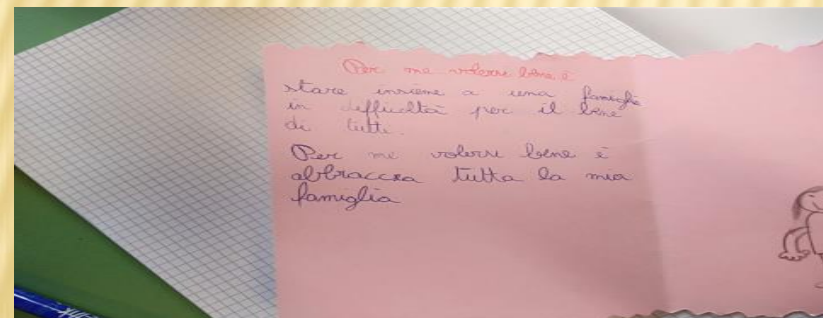 Per me volersi bene è
stare insieme a una famiglia
in difficoltà per il bene
di tutti.
Per me volersi bene è
abbraccia tutta la mia
famiglia